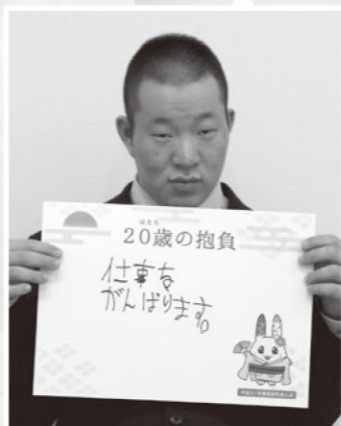 はたち
20歳の抱負
仕事を
がんばります。